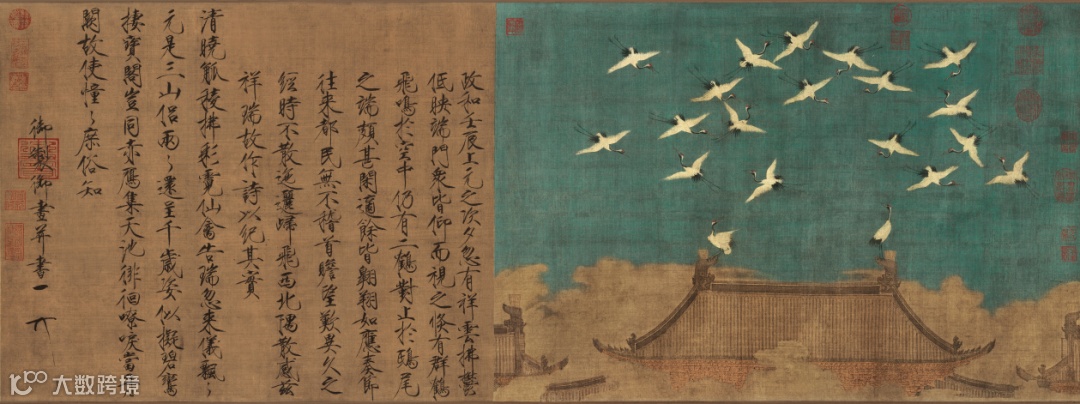 政和壬辰上元之次夕忽有祥雲拂鬱
低映端門衆皆仰而視之倏有群鶴
飛鳴於空中仍有二鶴對止於鴟尾
之端頗甚閑適餘皆翱翔如應奏節
往來都民無不稽首瞻望歎異久之
經時不散迤邐歸飛西北隅散感茲
祥瑞故作詩以紀其實
清曉觚稜拂彩霓仙禽告瑞忽來儀飄々
元是三山侶兩々還呈千歲姿似擬碧鸞
棲寶閣豈同赤鴈集天池徘徊嘹唳當
闕故使憧々庶俗知
御製御畫并書
大数跨境